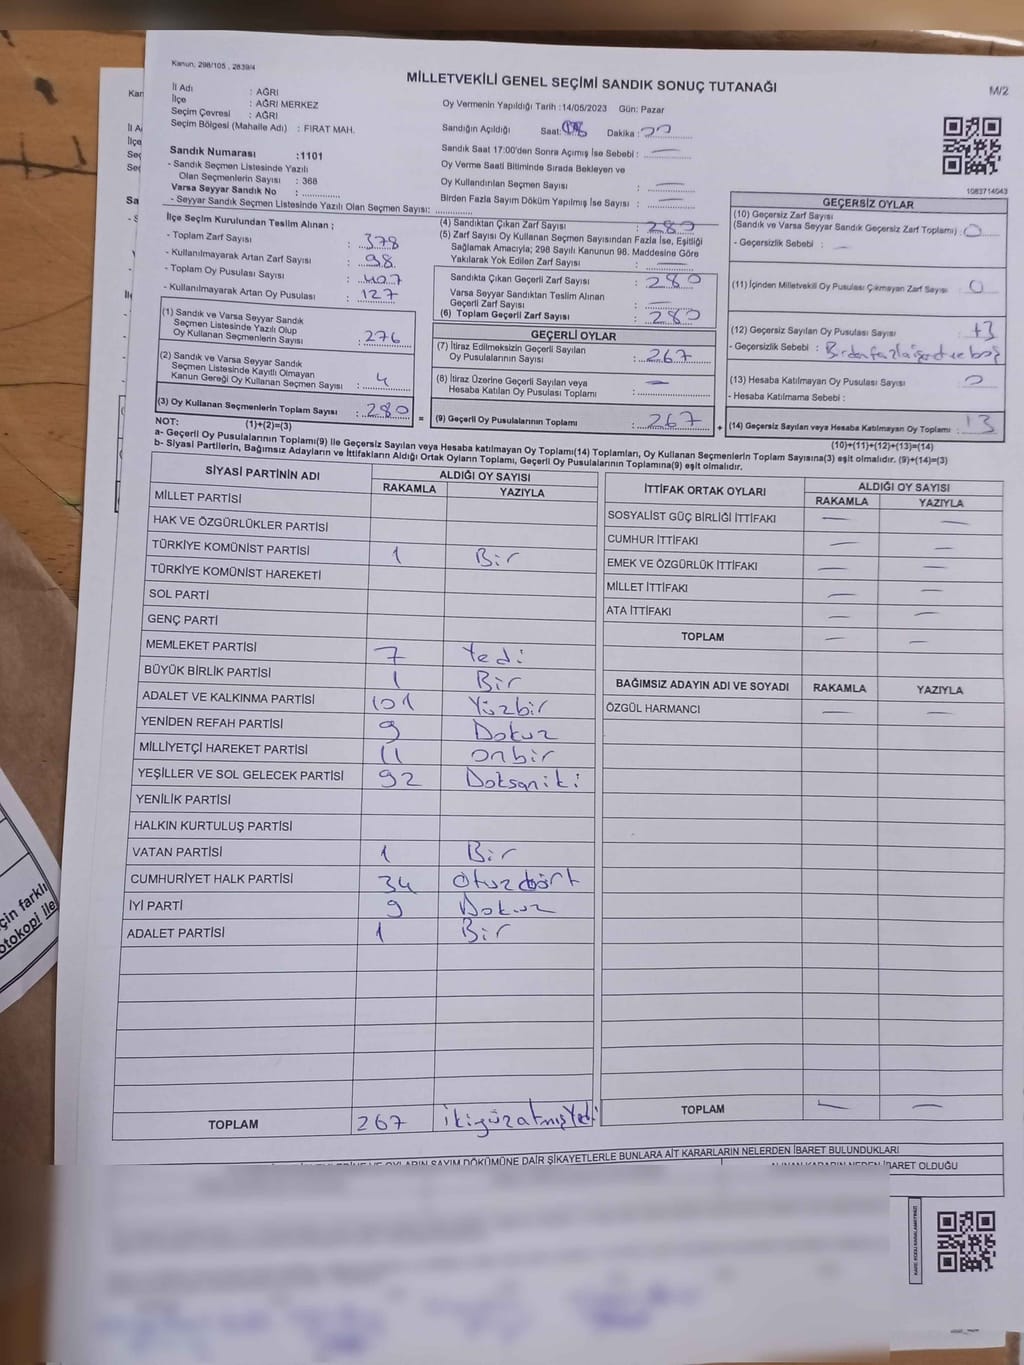 Kanun: 298/105 , 2839/4
MİLLETVEKİLİ GENEL SEÇİMİ SANDIK SONUÇ TUTANAĞI
M/2
İl Adı : AĞRI
İlçe : AĞRI MERKEZ
Seçim Çevresi : AĞRI
Seçim Bölgesi (Mahalle Adı) : FIRAT MAH.
Sandık Numarası :1101
- Sandık Seçmen Listesinde Yazılı
Olan Seçmenlerin Sayısı : 368
Varsa Seyyar Sandık No :
- Seyyar Sandık Seçmen Listesinde Yazılı Olan Seçmen Sayısı:
Oy Vermenin Yapıldığı Tarih :14/05/2023 Gün: Pazar
Sandığın Açıldığı Saat: Dakika :
Sandık Saat 17:00'den Sonra Açımış İse Sebebi : —
Oy Verme Saati Bitiminde Sırada Bekleyen ve
Oy Kullandırılan Seçmen Sayısı : —
Birden Fazla Sayım Döküm Yapılmış İse Sayısı : —
1083714043
İlçe Seçim Kurulundan Teslim Alınan ;
- Toplam Zarf Sayısı : 378
- Kullanılmayarak Artan Zarf Sayısı : 98
- Toplam Oy Pusulası Sayısı : 407
- Kullanılmayarak Artan Oy Pusulası : 127
(1) Sandık ve Varsa Seyyar Sandık
Seçmen Listesinde Yazılı Olup
Oy Kullanan Seçmenlerin Sayısı : 276
(2) Sandık ve Varsa Seyyar Sandık
Seçmen Listesinde Kayıtlı Olmayan
Kanun Gereği Oy Kullanan Seçmen Sayısı : 4
(3) Oy Kullanan Seçmenlerin Toplam Sayısı : 280
(1)+(2)=(3)
(4) Sandıktan Çıkan Zarf Sayısı : 280
(5) Zarf Sayısı Oy Kullanan Seçmen Sayısından Fazla İse, Eşitliği
Sağlamak Amacıyla; 298 Sayılı Kanunun 98. Maddesine Göre
Yakılarak Yok Edilen Zarf Sayısı : —
Sandıkta Çıkan Geçerli Zarf Sayısı : 280
Varsa Seyyar Sandıktan Teslim Alınan
Geçerli Zarf Sayısı : —
(6) Toplam Geçerli Zarf Sayısı : 280
GEÇERLİ OYLAR
(7) İtiraz Edilmeksizin Geçerli Sayılan
Oy Pusulalarının Sayısı : 267
(8) İtiraz Üzerine Geçerli Sayılan veya
Hesaba Katılan Oy Pusulaları Toplamı : —
= (9) Geçerli Oy Pusulalarının Toplamı : 267
GEÇERSİZ OYLAR
(10) Geçersiz Zarf Sayısı
(Sandık ve Varsa Seyyar Sandık Geçersiz Zarf Toplamı) : 0
- Geçersizlik Sebebi : —
(11) İçinden Milletvekili Oy Pusulası Çıkmayan Zarf Sayısı : 0
(12) Geçersiz Sayılan Oy Pusulası Sayısı : 13
- Geçersizlik Sebebi : Birden fazla
(13) Hesaba Katılmayan Oy Pusulası Sayısı : 0
- Hesaba Katılmama Sebebi :
+ (14) Geçersiz Sayılan veya Hesaba Katılmayan Oy Toplamı : 13
(10)+(11)+(12)+(13)=(14)
NOT:
a- Geçerli Oy Pusulalarının Toplamı(9) ile Geçersiz Sayılan veya Hesaba katılmayan Oy Toplamı(14) Toplamları, Oy Kullanan Seçmenlerin Toplam Sayısına(3) eşit olmalıdır. (9)+(14)=(3)
b- Siyasi Partilerin, Bağımsız Adayların ve İttifakların Aldığı Ortak Oyların Toplamı, Geçerli Oy Pusulalarının Toplamına(9) eşit olmalıdır.
SİYASİ PARTİNİN ADI ALDIĞI OY SAYISI
RAKAMLA YAZIYLA
MİLLET PARTİSİ
HAK VE ÖZGÜRLÜKLER PARTİSİ
TÜRKİYE KOMÜNİST PARTİSİ 1 Bir
TÜRKİYE KOMÜNİST HAREKETİ
SOL PARTİ
GENÇ PARTİ
MEMLEKET PARTİSİ 7 Yedi
BÜYÜK BİRLİK PARTİSİ 1 Bir
ADALET VE KALKINMA PARTİSİ 101 Yüzbir
YENİDEN REFAH PARTİSİ 9 Dokuz
MİLLİYETÇİ HAREKET PARTİSİ 11 onbir
YEŞİLLER VE SOL GELECEK PARTİSİ 92 Doksaniki
YENİLİK PARTİSİ
HALKIN KURTULUŞ PARTİSİ
VATAN PARTİSİ 1 Bir
CUMHURİYET HALK PARTİSİ 34 Otuzdört
İYİ PARTİ 9 Dokuz
ADALET PARTİSİ 1 Bir
TOPLAM 267 ikiyüzatmışYedi
İTTİFAK ORTAK OYLARI ALDIĞI OY SAYISI
RAKAMLA YAZIYLA
SOSYALİST GÜÇ BİRLİĞİ İTTİFAKI — —
CUMHUR İTTİFAKI — —
EMEK VE ÖZGÜRLÜK İTTİFAKI — —
MİLLET İTTİFAKI — —
ATA İTTİFAKI — —
TOPLAM — —
BAĞIMSIZ ADAYIN ADI VE SOYADI RAKAMLA YAZIYLA
ÖZGÜL HARMANCI — —
TOPLAM — —
OYLARIN SAYIM DÖKÜMÜNE DAİR ŞİKAYETLERLE BUNLARA AİT KARARLARIN NELERDEN İBARET BULUNDUKLARI
ALINAN KARARIN NEDEN İBARET OLDUĞU
çin farklı
otokopi ile